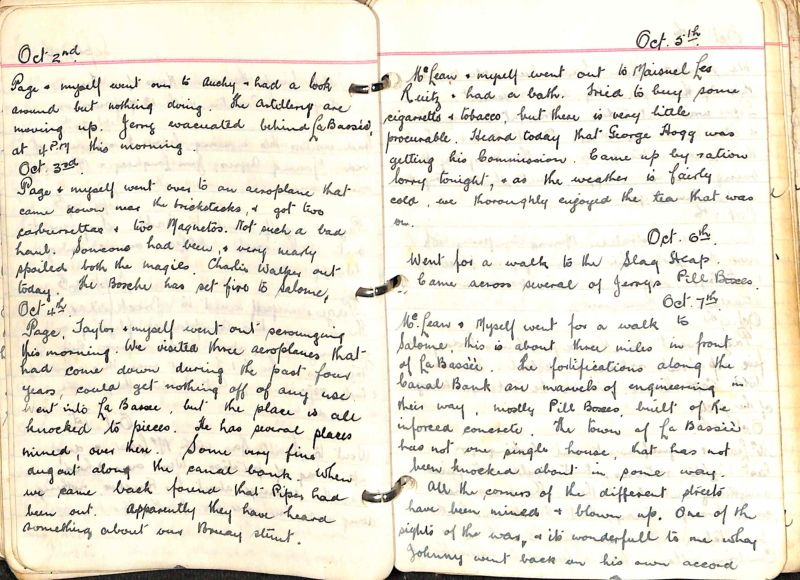 Oct 2nd
Page & myself went over to Auchy & had a look
around but nothing doing. The Artillery are
moving up. Jerry evacuated behind La Bassée,
at 4 P.M this morning.
Oct. 3rd.
Page & myself went over to an aeroplane that
came down near the brickstacks, & got two
carburettas & two Magnetos. Not such a bad
haul. Someone had been, & very nearly
spoiled both the magies. Charlie Walker out
today. The Bosche has set fire to Salome,
Oct 4th
Page, Taylor & myself went out scrounging
this morning. We visited three aeroplanes that
had come down during the past four
years, could get nothing off of any use
Went into La Bassee, but the place is all
knocked to pieces. He has several places
mined, over there. Some very fine
dugout along the canal bank. When
we came back found that Pipes had
been out. Apparently they have heard
something about our Bruay stunt.
Oct. 5th.
McLean & myself went out to Maisnel Les
Ruitz & had a bath. Tried to buy some
cigarettes & tobacco, but there is very little
procurable. Heard today that George Hogg was
getting his Commission. Came up by ration
lorry tonight, & as the weather is fairly
cold, we thoroughly enjoyed the tea that was
on.
Oct. 6th.
Went for a walk to the Slag Heap.
Came across several of Jerrys Pill Boxes.
Oct. 7th
McLean & Myself went for a walk to
Salome, this is about three miles in front
of La Bassée. The fortifications along the
Canal Bank are marvels of engineering in
their way, mostly Pill Boxes, built of Re
inforced concrete. The town of La Bassée
has not one single house, that has not
been knocked about in some way.
All the corners of the different streets
have been mined & blown up. One of the
sights of the war, & its wonderfull to me why
Johnny went back on his own accord